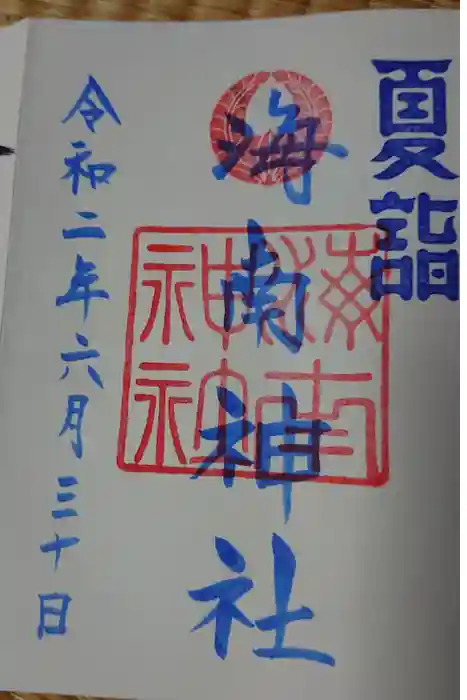 夏詣
海南神社
海南神社
令和二年六月三十日